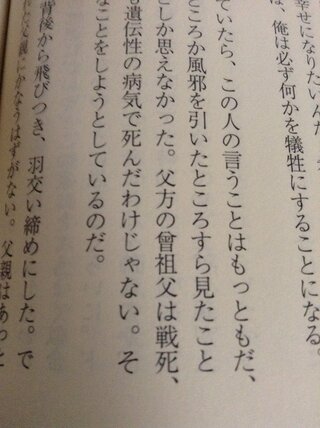 幸せになりたいんだ
は、俺は必ず何かを犠牲にすることになる。
ていたら、この人の言うことはもっともだ、
ところか風邪を引いたところすら見たこと
としか思えなかった。父方の曾祖父は戦死、
も遺伝性の病気で死んだわけじゃない。そ
なことをしようとしているのだ。
背後から飛びつき、羽交い締めにした。で
父親にかなうはずがない。父親はあっと